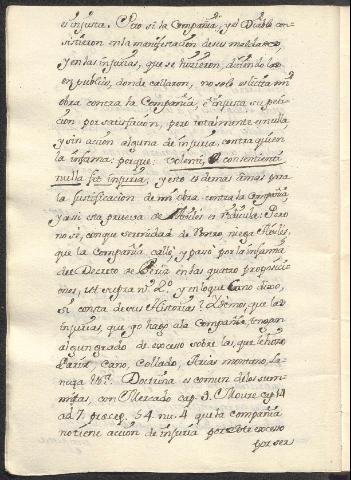 es injusta. Pero si la Compañia, y el Diablo con-
sistieron en la manifestacion de sus maldades,
y en las injurias, que se hizieron, diziendolas
en publico, donde callaron, no solo es licita mi
obra contra la Compañia, è injusta su peti-
cion por satisfaccion, pero totalmente es nulla,
y sin accion alguna de injuria, contra quien
la infama: porque: volenti, & consentienti
nulla fit injuria, y esto es demas à mas para
la justificacion de mi obra contra la Compañia,
y assi esta prueva de es ridicula. Pero
no sè, con que serenidad de niega
que la Compañia callò, y passò por la infamia
del Decreto de en las quatro proposici-
ones, ut supra nº 2º y en lo que Cano dixo,
si consta de sus Historias? Demos, que las
injurias, que yo hago à la Compañia, tengan
algun grado de excesso sobre las, que le hizo
Paris, Cano, Collado, Arias montano, La-
nuza &c. Doctrina es comun de los sum-
mistas, con Mercado cap. 9. Moure cap 14
ad 7. precep. § 4. nu. 4 que la compañia
no tiene accion de injuria por este excesso
por ser